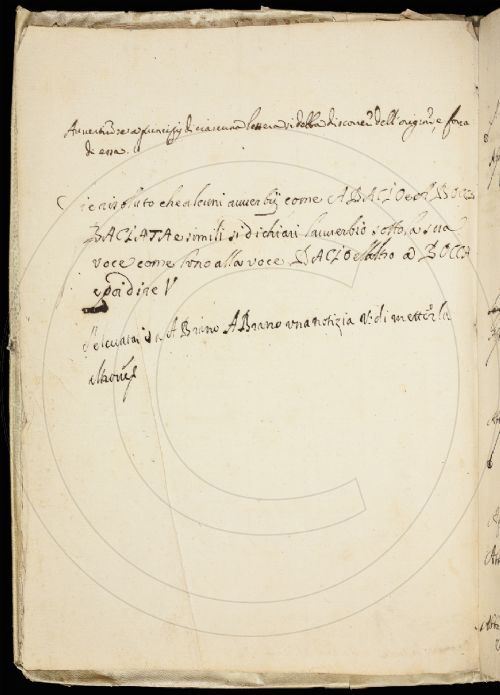 Avvertire a principij di ciascuna lettera si debba discorrer dell'origine, e forza
di essa.
Si è risoluto che alcuni avverbij come A BACIO et A BOCCA
BACIATA e simili si dichiari l'avverbio sotto la sua
voce come l'uno alla voce BACIO e l'altro a BOCCA
e poi dire V
A Brano A Brano una notizia di metterla
altrove